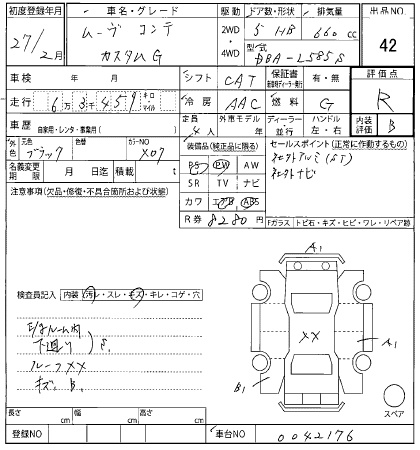 初度登録年月
27/2月
車名・グレード
ムーヴ コンテ
カスタムG
駆動
2WD
・
4WD
ドア数・形状
5 HB
排気量
660 cc
型式
DBA-L585S
出品NO
42
車検 年 月
シフト CAT
保証書
有・無
評価点
R
走行 6万3千459 キロ マイル
冷房 AAC
燃料 G
車歴
自家用・レンタ・事業用( )
定員
4人
外車モデル
年
ディーラー
並行
ハンドル
左・右
内装
評価
B
外色
元色
ブラック
色替
カラーNO
X07
装備品(純正品に限る)
PS PW AW
SR TV ナビ
カワ エアB ABS
R券 8280円
セールスポイント(正常に作動するもの)
社外アルミ(ST)
社外ナビ
名義変更
期限
月 日迄
積載 t
注意事項(欠品・修復・不具合箇所および状態)
Fガラス トビ石・キズ・ヒビ・ワレ・リペア跡
検査員記入 内装 汚レ・スレ・キズ・キレ・コゲ・穴
下廻り S.
ルーフXX
キズ B.
A1
XX
A1
B1
スペア
長さ cm
幅 cm
高さ cm
登録NO
車台NO
0042176